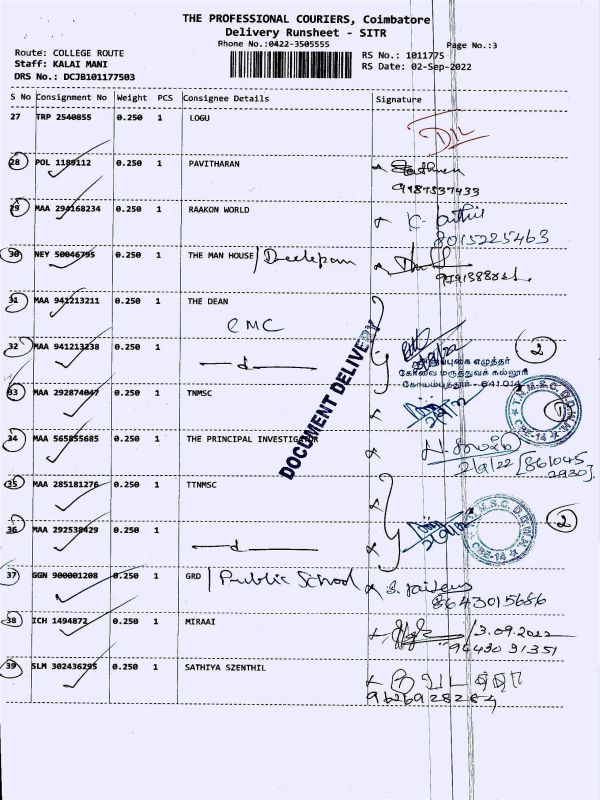 THE PROFESSIONAL COURIERS, Coimbatore
Delivery Runsheet - SITR
Phone No.:0422-3505555
Page No.:3
Route: COLLEGE ROUTE
RS No.: 1011775
Staff: KALAI MANI
RS Date: 02-Sep-2022
DRS No.: DCJB101177503
S No Consignment No Weight PCS Consignee Details Signature
27 TRP 2540855 0.250 1 LOGU
28 POL 1189112 0.250 1 PAVITHARAN
29 MAA 294168234 0.250 1 RAAKON WORLD
8015225463
30 NEY 50046795 0.250 1 THE MAN HOUSE / Deelepan
31 MAA 941213211 0.250 1 THE DEAN
CMC
32 MAA 941213238 0.250 1
2
கோவை மருத்துவக் கல்லூரி
கோயம்புத்தூர் - 641 014
33 MAA 292874047 0.250 1 TNMSC
1
34 MAA 565855685 0.250 1 THE PRINCIPAL INVESTIGATOR
2/9/22 [861045
2930]
DOCUMENT DELIVERY
35 MAA 285181276 0.250 1 TTNMSC
36 MAA 292538429 0.250 1
2
37 GGN 900001208 0.250 1 GRD / Public School
8643015686
38 ICH 1494872 0.250 1 MIRAAI
/3.09.2022
94430 31351
39 SLM 302436295 0.250 1 SATHIYA SZENTHIL